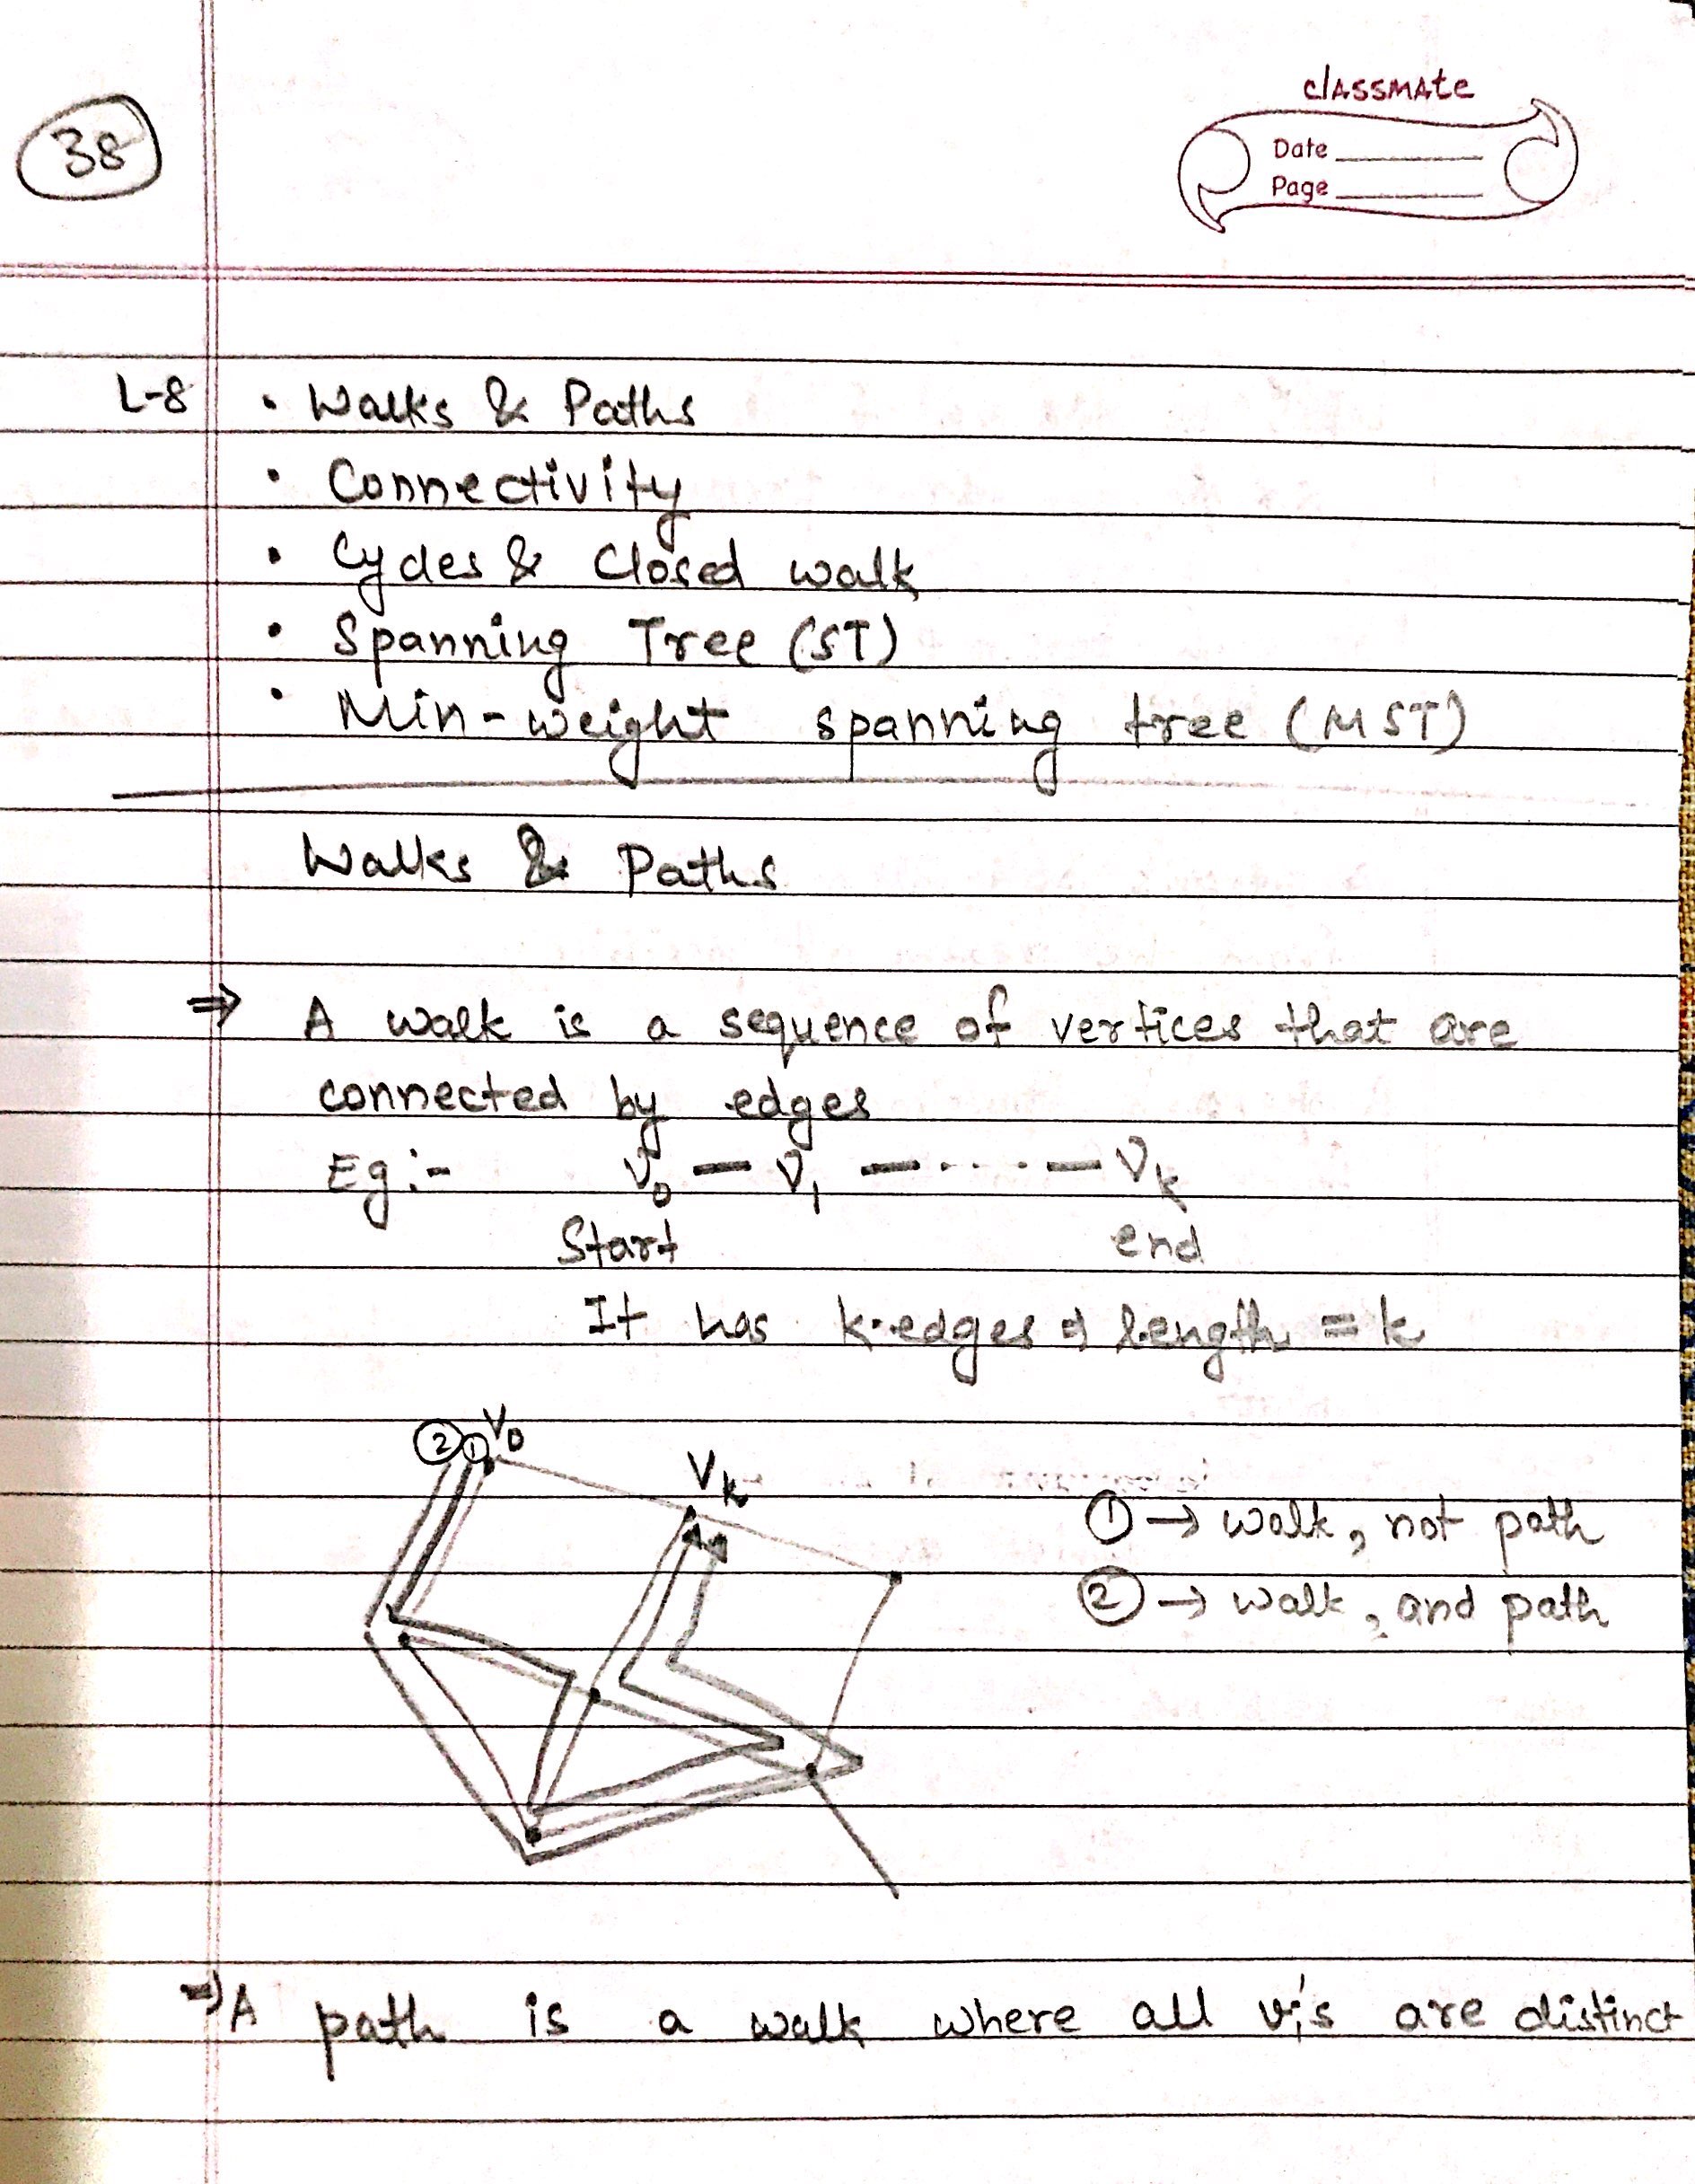 38
classmate
Date
Page
L-8 • Walks & Paths
• Connectivity
• Cycles & Closed walk
• Spanning Tree (ST)
• Min-weight spanning tree (MST)
Walks & Paths
⇒ A walk is a sequence of vertices that are
connected by edges
Eg:- V₀ — V₁ — .... — Vₖ
Start end
It has k-edges & length = k
② ① V₀
Vₖ
① → walk, not path
② → walk, and path
⇒ A path is a walk where all vᵢ's are distinct